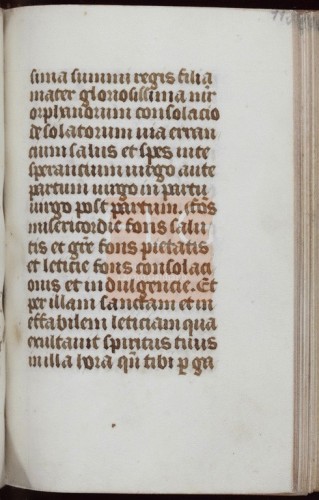 sima summi regis filia
mater gloriosissima mr̄
orphanorum consolacio
desolatorum uia erran
cium salus et spes inte
sperancium uirgo ante
partum uirgo in partu
uirgo post partum. Fōs
misericordie fons salu
tis et grē fons pietatis
et leticie fons consolaci
onis et indulgencie. Et
per illam sanctam et in
effabilem leticiam qua
exultauit spiritus tuus
in illa hora qn̄ tibi p ga